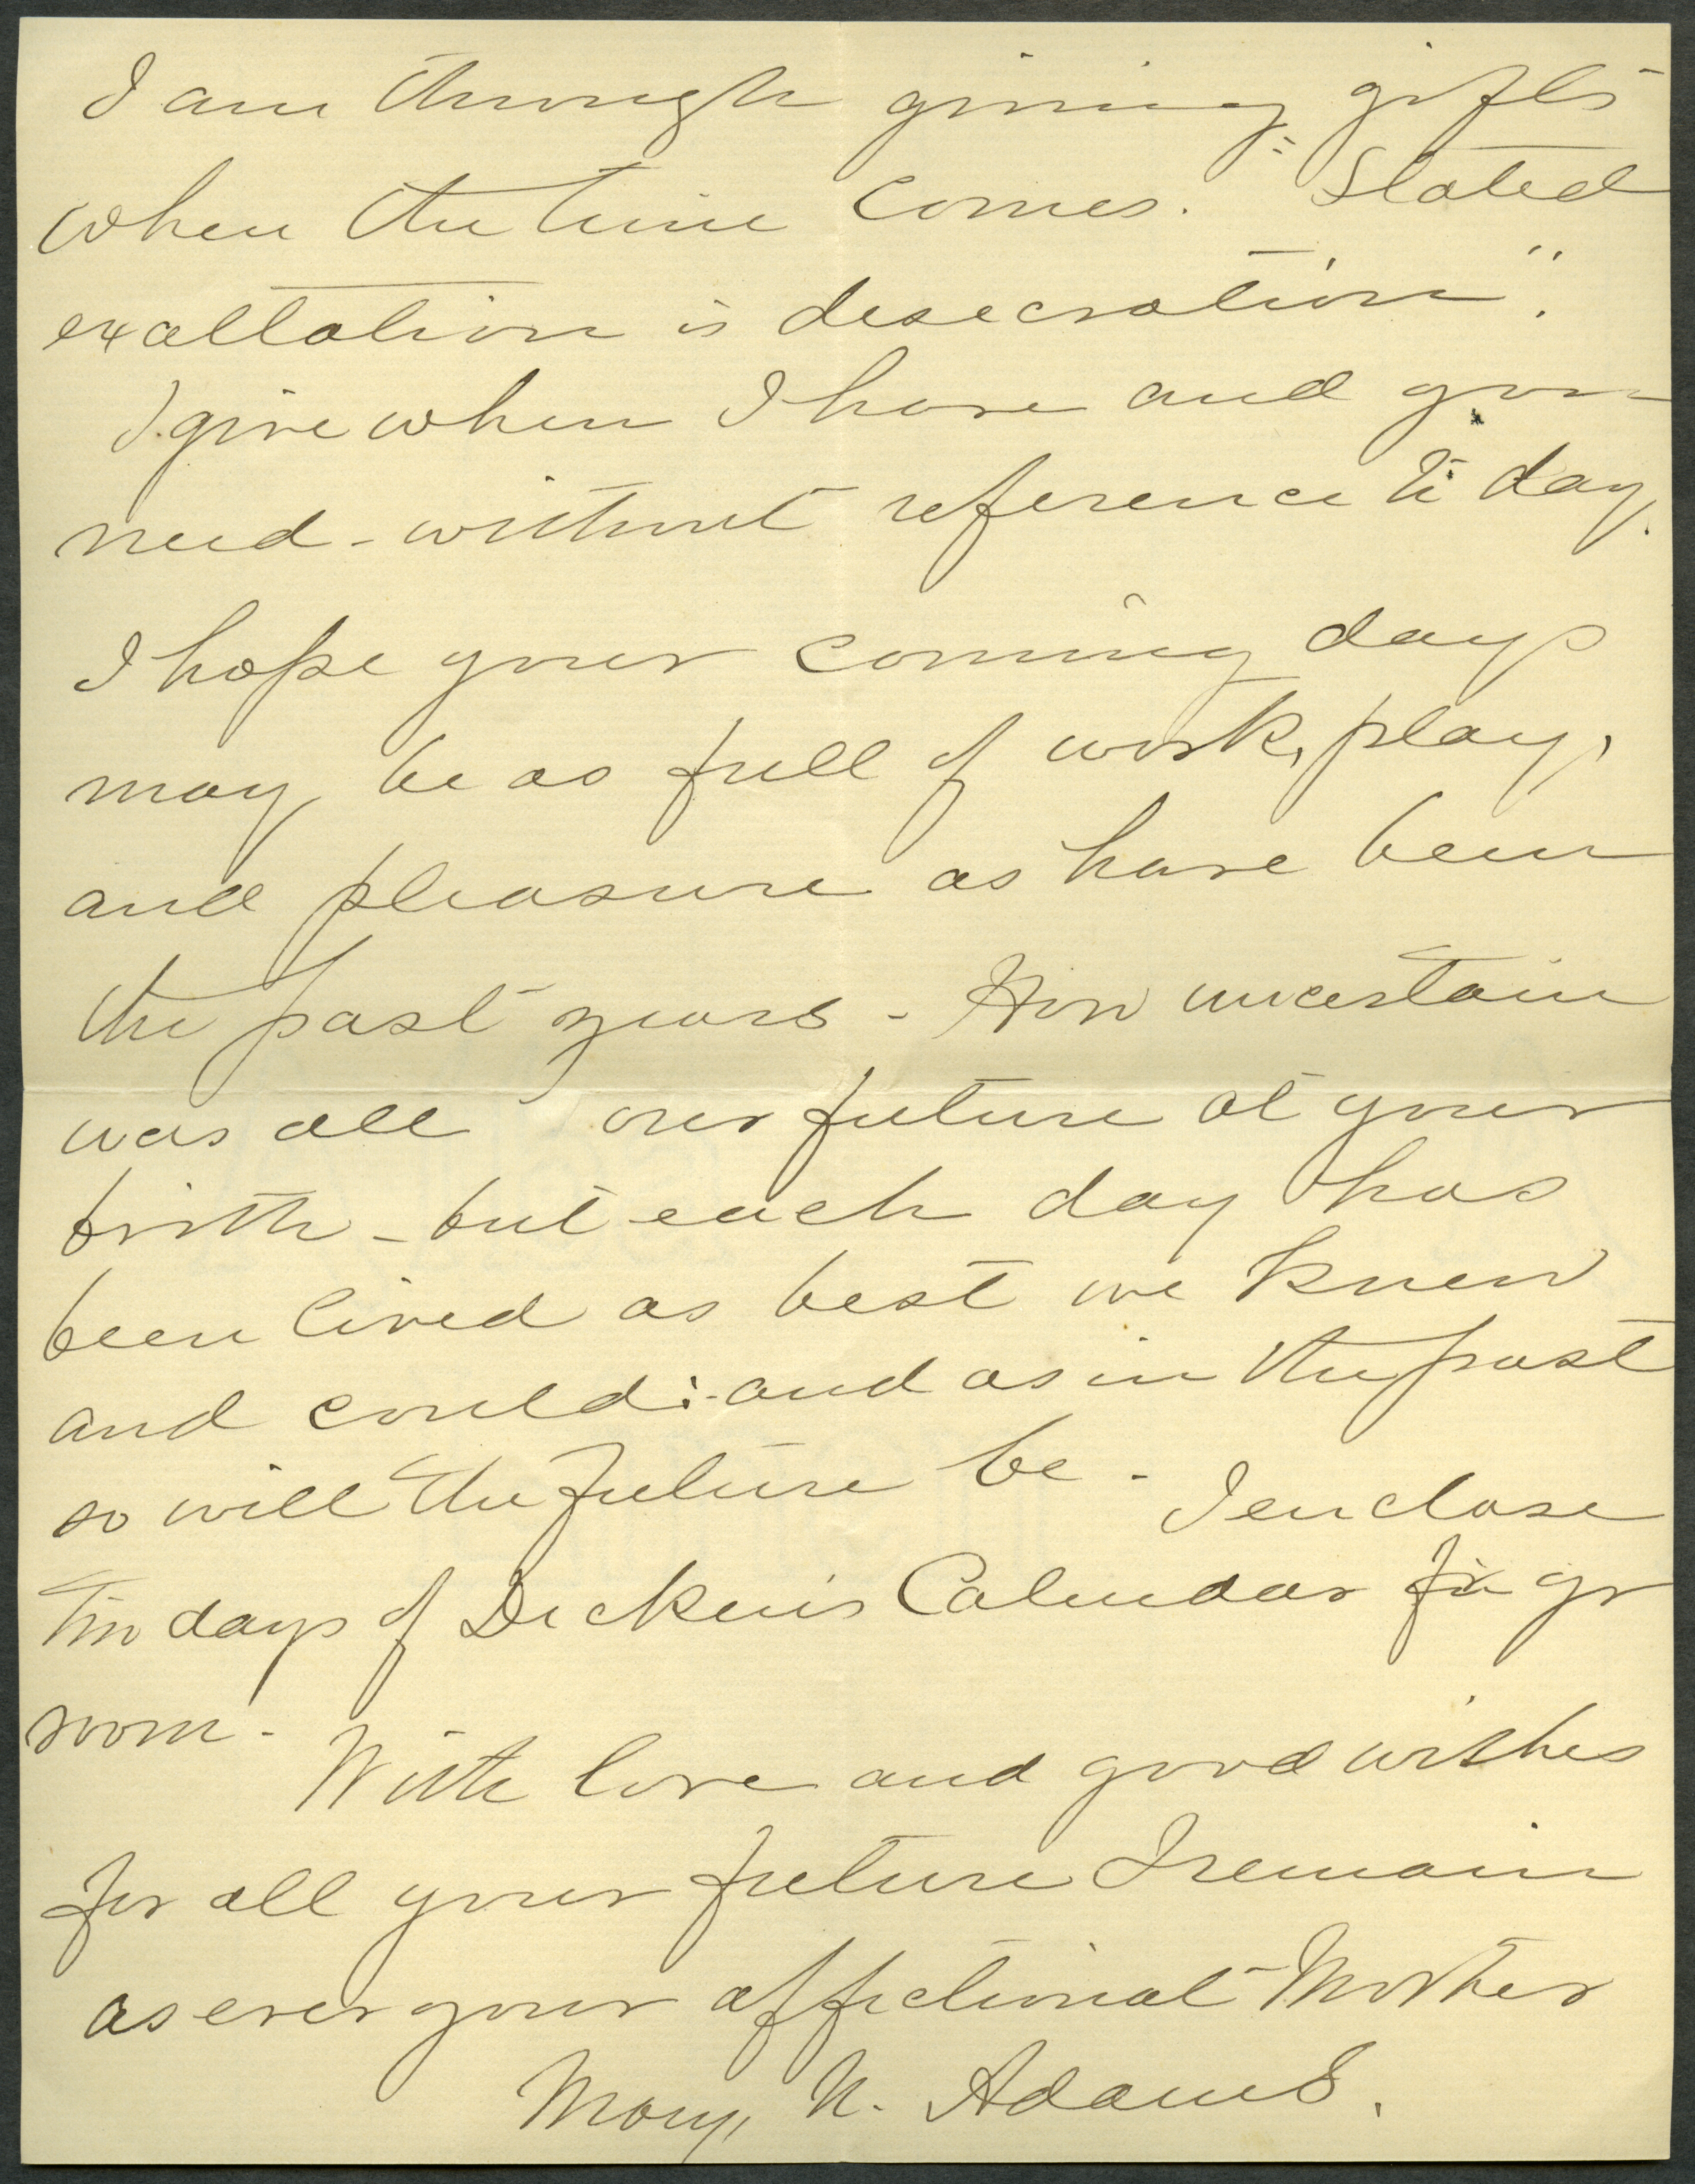 I am through giving gifts
when the time comes. "Stated
exaltation is desecration".
I give when I have and you
need - without reference to day.
I hope your coming days
may be as full of work, play,
and pleasure as have been
the past years - How uncertain
was all our future at your
birth - but each day has
been lived as best we knew
and could:- and as in the past
so will the future be - I enclose
two days of Dickens Calendar for yr
room -
With love and good wishes
for all your future I remain
as ever your affectionat Mother
Mary N. Adams.